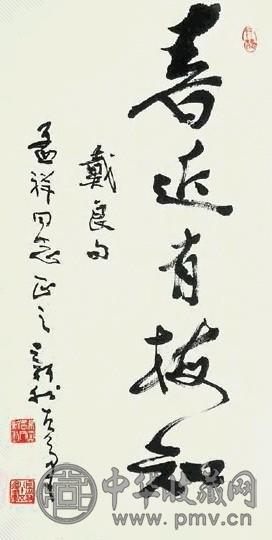 春近有梅知
戴良句
孟祥同志正之 新我左
中华收藏网
www.pmv.cn